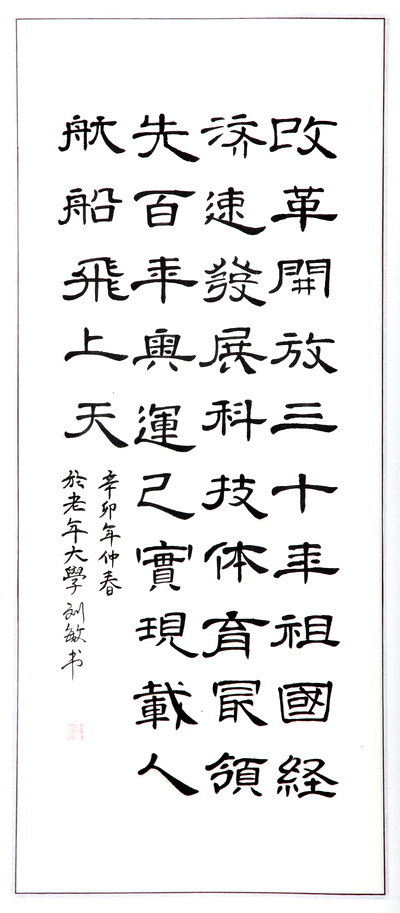 改革開放三十年祖國経
济速發展科技体育最領
先百年奥運己實現載人
航船飛上天
辛卯年仲春
於老年大學刘敏书